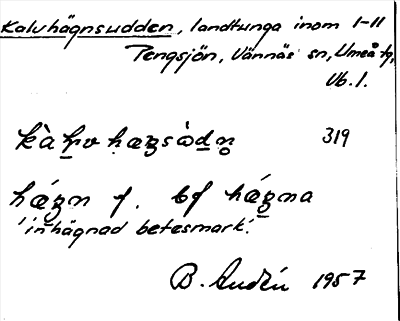 Kalvhägnsudden, landtunga inom 1-11
Pengsjön, Vännäs sn, Umeå tg,
Vb.l.
319
hǽgn f. bf hǽgna
'inhägnad betesmark'.
B. Audén 1957